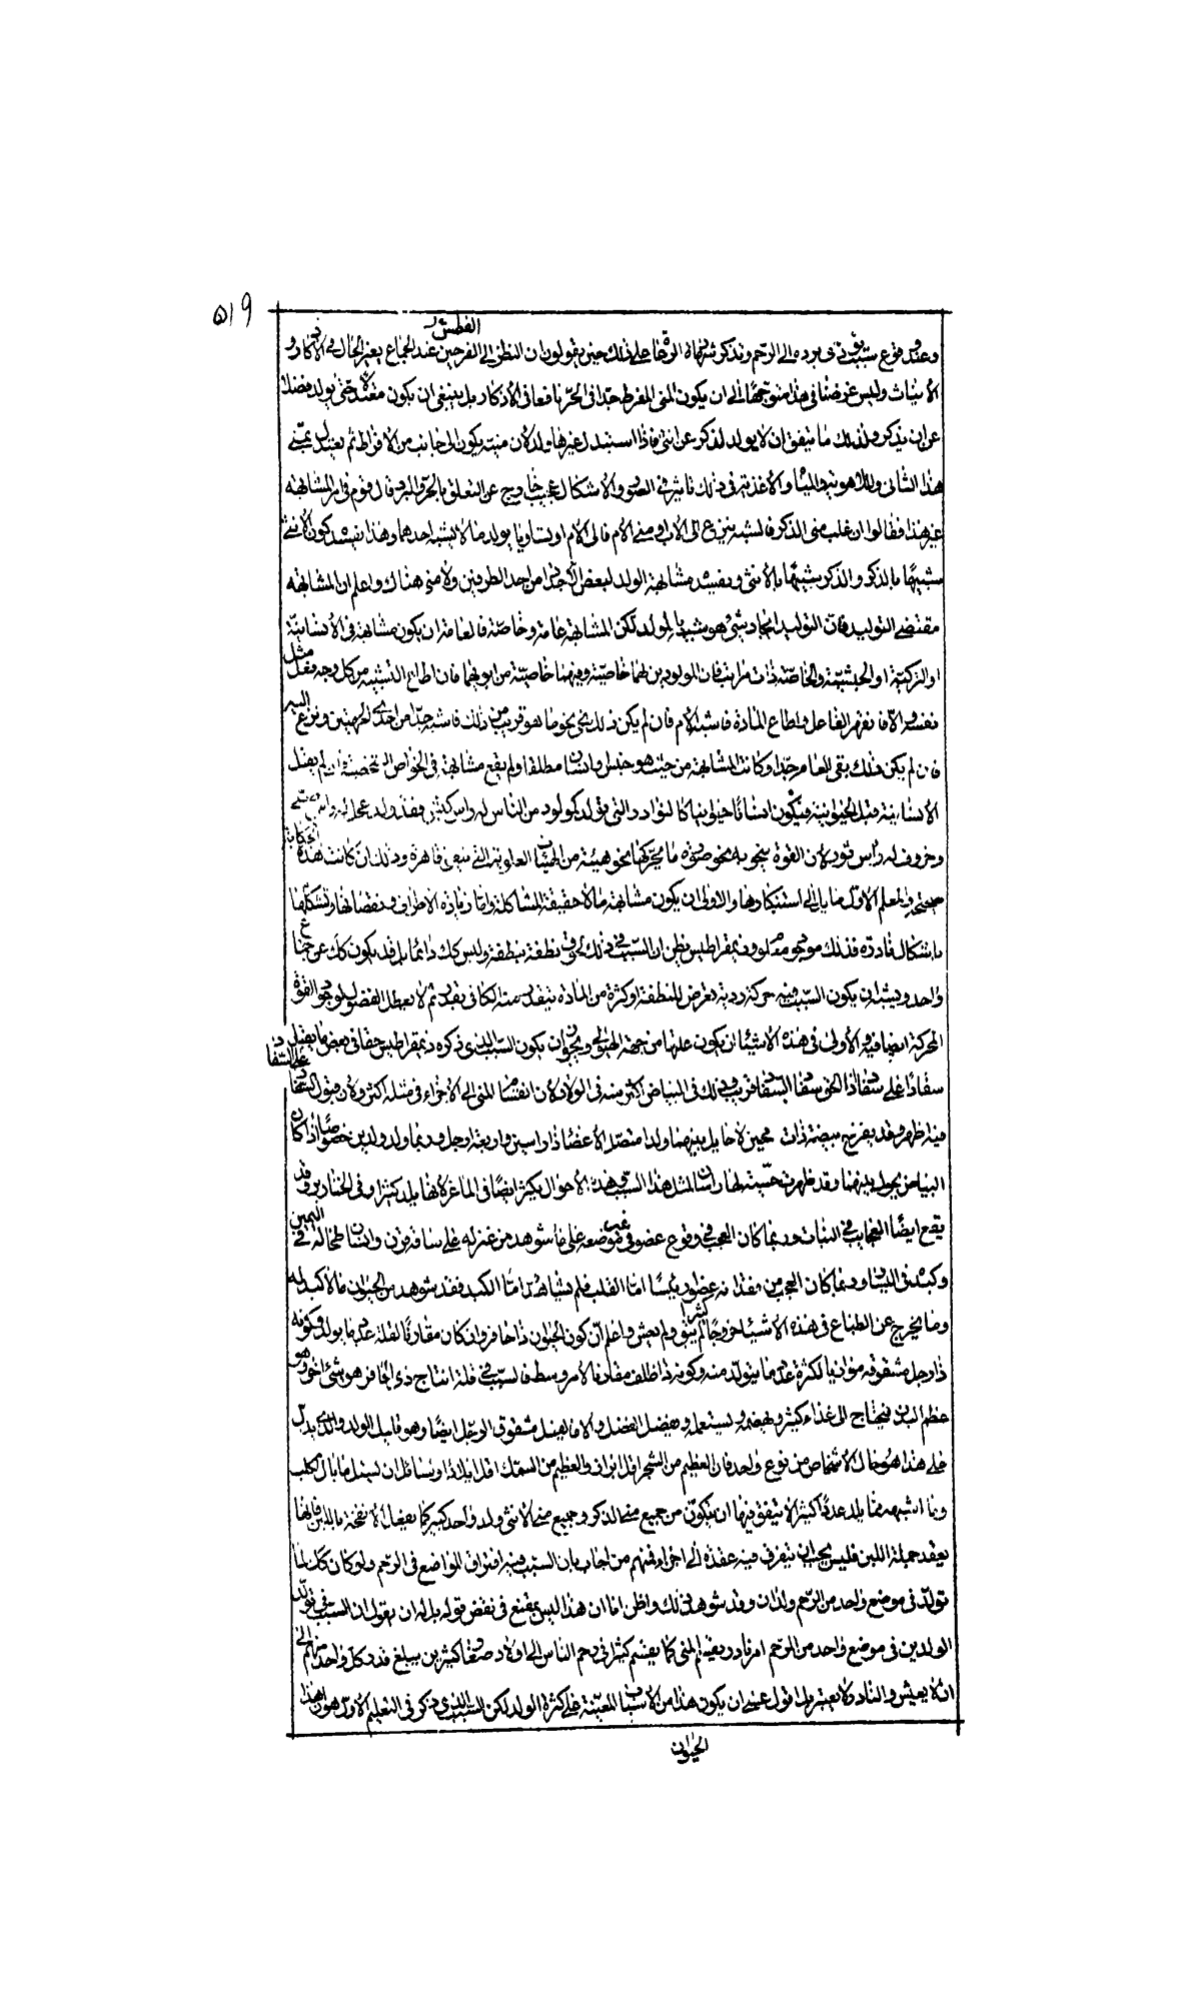 ٥١٩
وعند وقوع سبب يؤدى برده الى الرحم ونذكر شهادة الرعاة على ذلك حين يقولون ان النظر الى الفرجين عند الجماع يغير الحال فى الاذكار و
الأيناث وليس غرضنا فى هذا متوجها الى ان يكون المنى المفرط جدا فى الحر نافعا فى الاذكار بل ينبغى ان يكون معتدلا حتى يولد فضلا
عن ان يذكر ولذلك ما يتفق ان لا يولد لذكر عن انثى فاذا استبدل غيرها ولد لأن منيته يكون الى جانب من الافراط ثم يعتدل بمنى
هذا الثانى وللاهوية والمياه والأغذية فى ذلك تأثير فى الصور والأشكال عجيب خارج عن التعلق بالحر والبرد قال قوم فى امر المشابهة
غير هذا فقالوا ان غلب منى الذكر فالشبه ينزع الى الاب او منى الأم فالى الأم او تساويا يولد ما لا يشبه احدهما وهذا يفسد كون الأنثى
شبيها بالذكر والذكر شبيها بالأنثى ويفسد مشابهة الولد لبعض الأجداد من احد الطرفين ولا منى هناك واعلم ان المشابهة
مقتضى التوليد فان التوليد ايجاد شئ هو شبيه بالمولد لكن المشابهة عامة وخاصة فالعامة ان يكون مشابهة فى الأنسانية
او التركية او الحبشية والخاصة ذات مراتب فان المولودين لهما خاصية وفيهما خاصية من ابويهما فان اطاع التشبيه من كل وجه فعل مثل
نفسه والا فان قهر الفاعل واطاع المادة فاشبه الأم فان لم يكن ذلك نحى نحو ما هو قريب من ذلك فاشبه جدا من احدى الجهتين ونزع اليه
فان لم يكن ذلك بقى العام جدا وكانت المشابهة من حيث هو حيوان وانسان مطلقا ولم يقع مشابهة فى الخواص الشخصية فان لم يقبل
الأنسانية قبل الحيوانية فيكون انسانا حيوانيا كالنوادر التى تولد كمولود من الناس له راس كبش فقد ولد عجل له راس صبى
وخروف له رأس ثور لان القوة ينحو به نحو صورة ما يحركها نحو هيئة من الهيئات العلوية التى تبقى قاهرة وذلك ان كانت هذه الحكاية
صحيحة والمعلم الاول مايل الى استنكارها والاولى ان يكون مشابهة ما لا حقيقة المشاكلة واما زيادة الاطراف ونقصانها وتشكلها
باشكال نادرة فذلك موجود معلوم وذيمقراطيس يظن ان السبب فى ذلك لحوق نطفة بنطفة وليس كك دائما بل قد يكون كك عن جماع
واحد ويشبه ان يكون السبب فيه حركة ردية تعرض للنطفة او كثرة من المادة ينفذ منه الكافى بقدر ثم لا يعطل الفضول لوجود القوة
المحركة ايضا فيه والأولى فى هذه الأشياء ان يكون علتها من جهة الهيولى ويجوز ان يكون السبب الذى ذكره ذيمقراطيس حقا فى بعض ما يقبل
سفادا على سفاد اذا لحق سفاد السفاد قريب وذلك فى البياض اكثر منه فى الولاد لان انقسام المنى الى الأجزاء فى مثله اكثر ولان قبول السفاد على السفاد
فيه اظهر وقد يفرخ بيضة ذات محين لا حايل بينهما ولدا متصل الأعضاء ذا راسين واربعة ارجل وربما ولد ولدين خصوصا اذا كان
البياض يحول بينهما وقد ظهرت حية لها راسان لمثل هذا السبب وهذه الأحوال يكثر ايضا فى الماعز لأنها يلد كثيرا وفى الخنازير وقد
يقع ايضا العجايب فى النبات وربما كان العجب فى وقوع عضو فى غير موضعه على ما شوهد من عنز له على ساقه قرن وانسان طحاله فى اليمين
وكبده فى اليسار وربما كان العجب من فقدانه عضوا رئيسا اما القلب فلم يشاهد واما الكبد فقد شوهد من الحيوان ما لا كبد له
وما يخرج عن الطباع فى هذه الأشياء خروجا كثيرا لم يبق ولم يعش واعلم ان كون الحيوان ذا حافر وان كان مقارنا لقلة عدد ما يولد وكونه
ذا رجل مشقوقة مؤذنا بالكثرة عدد ما يتولد منه وكونه ذا ظلف مقارنا لامر وسط فالسبب فى قلة انتاج ذى الحافر هو شئ اخر وهو
عظم البدن فيحتاج الى غذاء كثير ويهضمه ويستعمله ويفضل الفضل والا فالفيل مشقوق الرجل ايضا وهو قليل الولد والذى يدل
على هذا هو حال الأشخاص من نوع واحد فان العظيم من الشجر اقل ابزارا والعظيم من السمك اقل ايلادا ولسائل ان يسئل ما بال الكلب
وما اشبهه مما يلد عددا كثيرا لا يتفق فيها ان يتكون من جميع منى الذكر وجميع منى الأنثى ولد واحد كبير كما يفعل الأنفحة باللبن فانها
يعقد جملة اللبن فليس يجب ان يتفرق فيه عقده الى اجزاء فمنهم من اجاب بان السبب فيه افتراق المواضع فى الرحم ولو كان كك لما
تولد فى موضع واحد من الرحم ولدان وقد شوهد ذلك واظن انا ان هذا ليس بمقنع فى نقض قوله بل له ان يقول ان السبب فى تولد
الولدين فى موضع واحد من الرحم امر نادر يقسم المنى كما يقسم كثيرا فى رحم الناس الى اولاد صغار كثيرين يبلغ قدر كل واحد منهم الى
ان لا يعيش والنادر لا يعتبر بل اقول عسى ان يكون هذا من الأسباب المعينة على كثرة الولد لكن السبب الذى ذكر فى التعليم الاول هو ان هذا
الحيوان